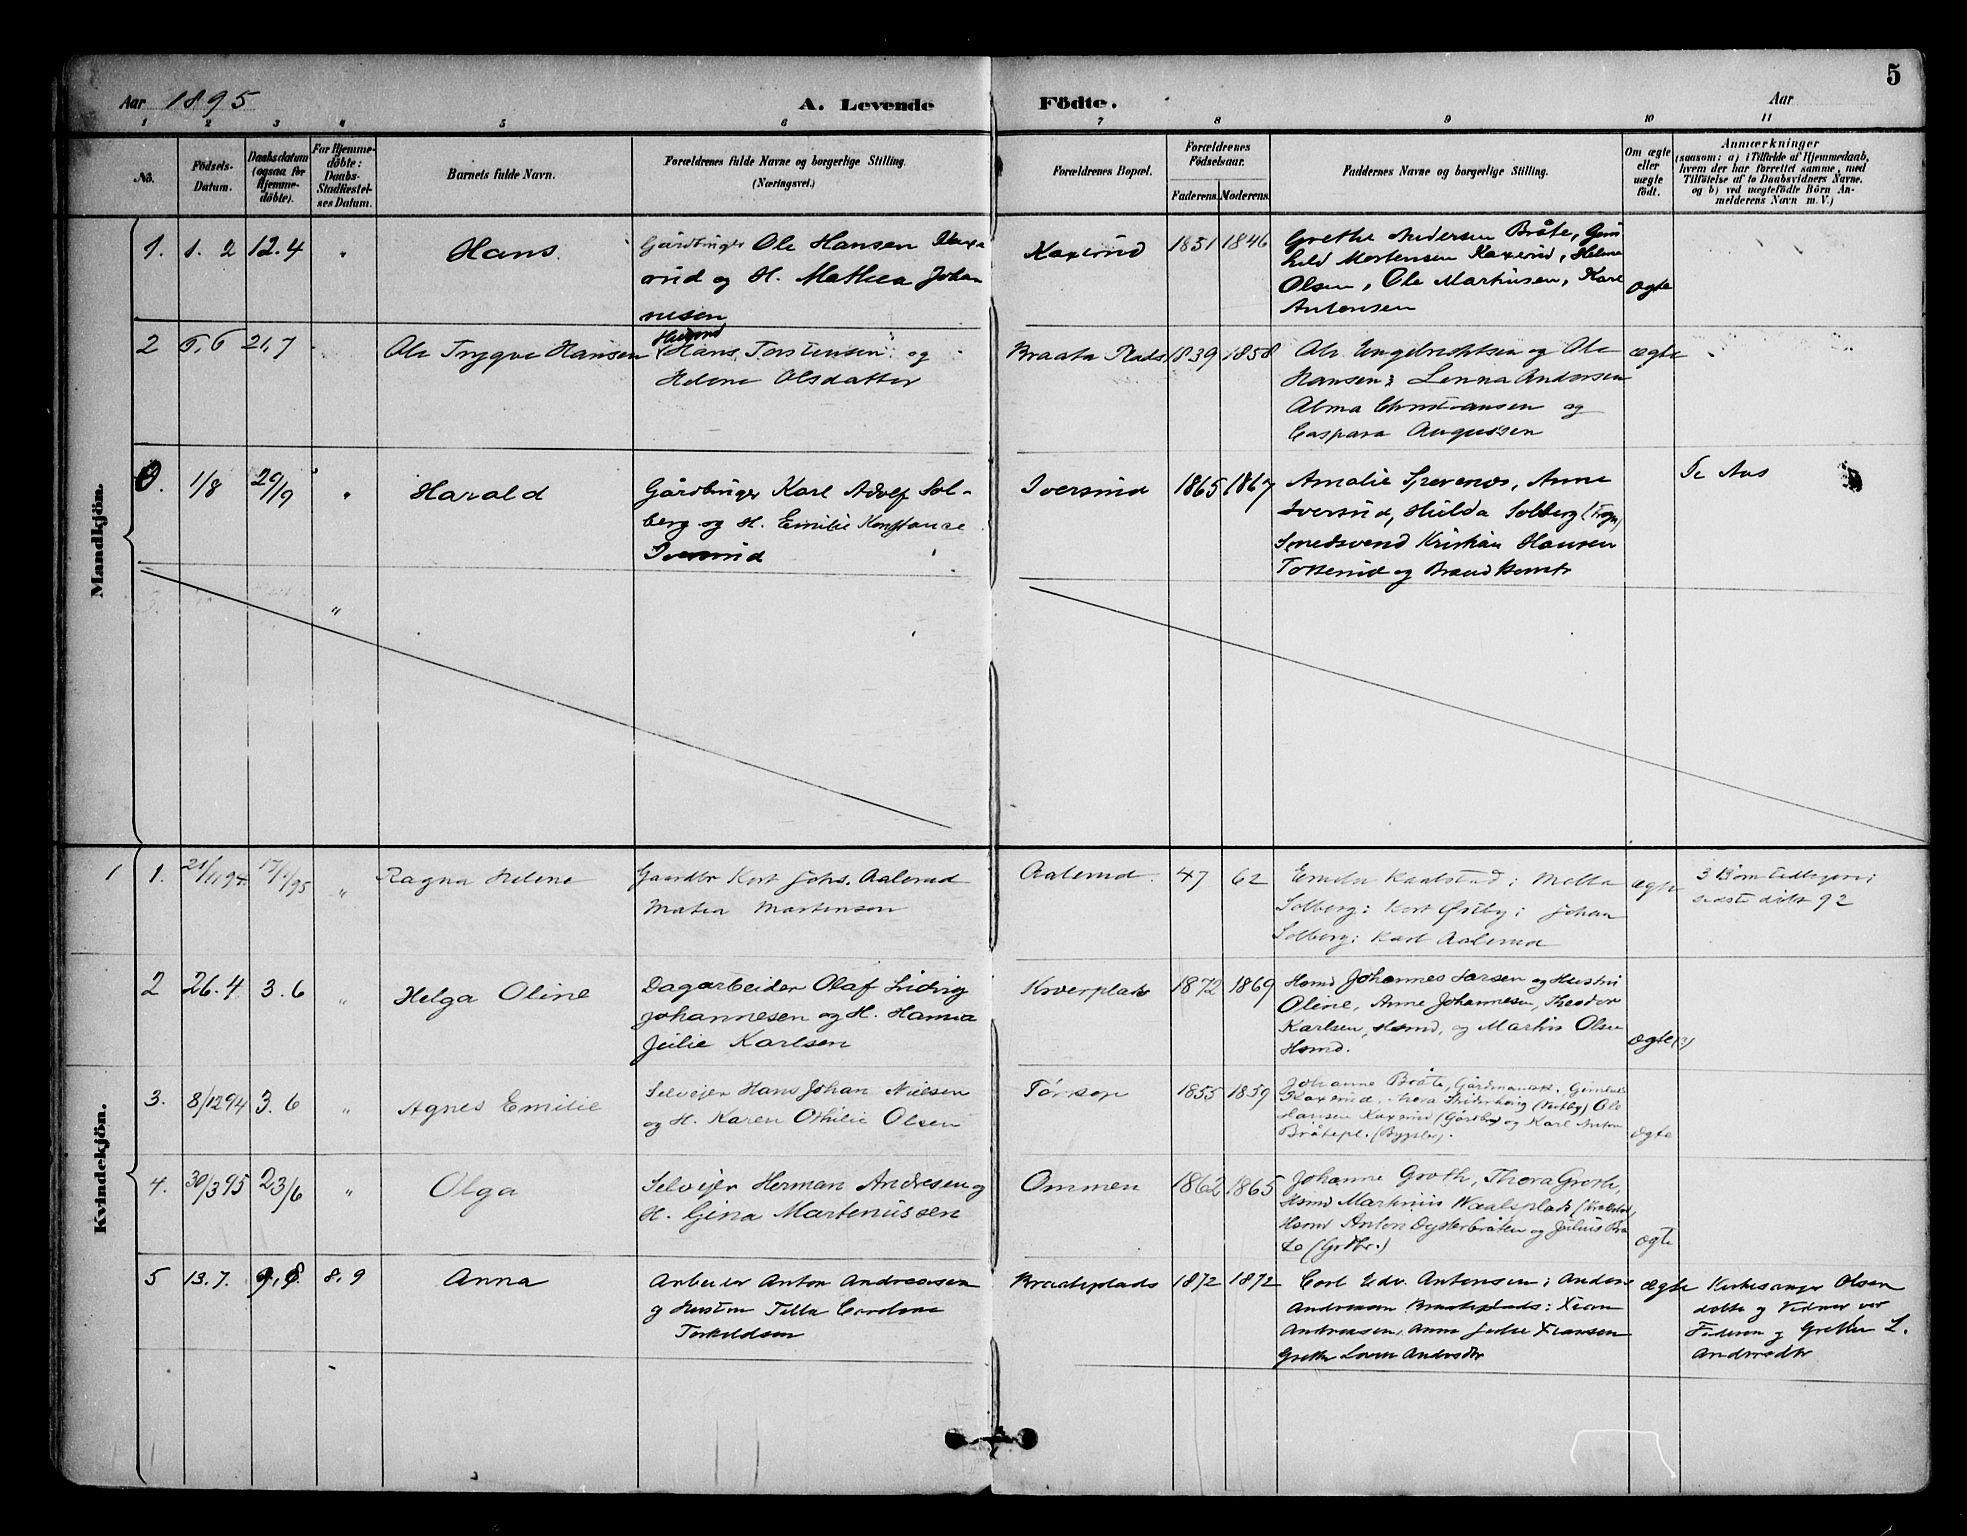 5
Aar 1895
A. Levende
Födte.
Aar
1 2 3 4 5 6 7 8 9 10 11
No.
Födsels-
Datum.
Daabsdatum
(ogsaa for
Hjemme-
döbte).
For Hjemme-
döbte:
Daabs-
Stadfæstel-
ses Datum.
Barnets fulde Navn.
Forældrenes fulde Navne og borgerlige Stilling.
(Næringsvei.)
Forældrenes Bopæl.
Forældrenes
Födselsaar.
Faderens. Moderens.
Faddernes Navne og borgerlige Stilling.
Om ægte
eller
uægte
födt.
Anmærkninger
(saasom: a) i Tilfælde af Hjemmedaab,
hvem der har forrettet samme, med
Tilföielse af to Daabsvidners Navne,
og b) ved uægtefödte Börn An-
melderens Navn m. V.)
Mandkjön.
1. 1. 2 12.4 " Hans.
Gårdbruger Ole Hansen Kaxe
rud og H. Mathea Johan
nesen
Kaxerud 1851 1846
Grethe Andersen Bråte, Gun
hild Mortensen Kaxerud, Helene
Olsen, Ole Martinsen, Karl
Antonsen
ægte
2 5.6 21.7 Ole Trygve Hansen
Husmd
Hans Torstensen og
Helene Olsdatter
Braata Plads 1839 1858
Ole Engebrethsen og Ole
Hansen; Lenna Andersen
Alma Christiansen og
Caspara Augussen
ægte
3. 1/8 29/9 " Harald
Gårdbruger Karl Adolf Sol-
berg og H. Emilie Konstance
Iversrud
Iversrud 1865 1867
Amalie Grevenes, Anne
Iversrud, Hulda Solberg (Frogn)
Smedsvend Kristian Hansen
Tosterud og
Te Aas
"
Kvindekjön.
1 1. 21/11 94 17/1 95 " Ragna Helene
Gaardbr Kort Johs. Aalerud
Matea Martenson
Aalerud. 47 62
Kaalstad; Metta
Solberg; Kort Østby; Johan
Solberg; Karl Aalerud
ægte
3 Børn tidligere;
sidste dilt 92
2 26.4 3.6 " Helga Oline
Dagarbeider Olaf Ludvig
Johannesen og H. Hanna
Julie Karlsen
Kverplads 1872 1869
Hsmd Johannes Larsen og Hustru
Oline, Anne Johannesen, Theodor
Karlsen, Hsmd, og Martin Olsen
Hsmd.
ægte (?)
3. 8/12 94 3.6 " Agnes Emilie
Selveier Hans Johan Nielsen
og H. Karen Othilie Olsen
Tørsop 1855 1859
Johanne Bråte, Gårdmandsk. Gunhild
Kaxerud, Thora (Vestby) Ole
Hansen Kaxerud (Gårdbr) og Karl Anton
Bråtepl. (Bygsler).
ægte
4. 30/3 95 23/6 " Olga
Selveier Herman Andresen og
H. Gina Martenussen
Ommen 1862 1865
Johanne Groth, Thora Groth,
Hsmd Martinius Kaalsplads (Kråkstad)
Hsmd Anton Dysterbråten og Julius Brå
te (Grdbr.)
ægte
5 13.7. 9.8. 8.9 Anna
Arbeider Anton Andreasen
og Hustru Tilla Caroline
Torkildsen
Braateplads 1872 1872
Carl Edv. Antonsen; Anders
Andreasen Braateplads; Xian
Andreasen, Anna Julie Xiansen
Grethe Lovise Andersdtr
ægte
Kirkesanger Olsen
døbte og Vidner var
Faderen og Grethe L.
Andersdtr